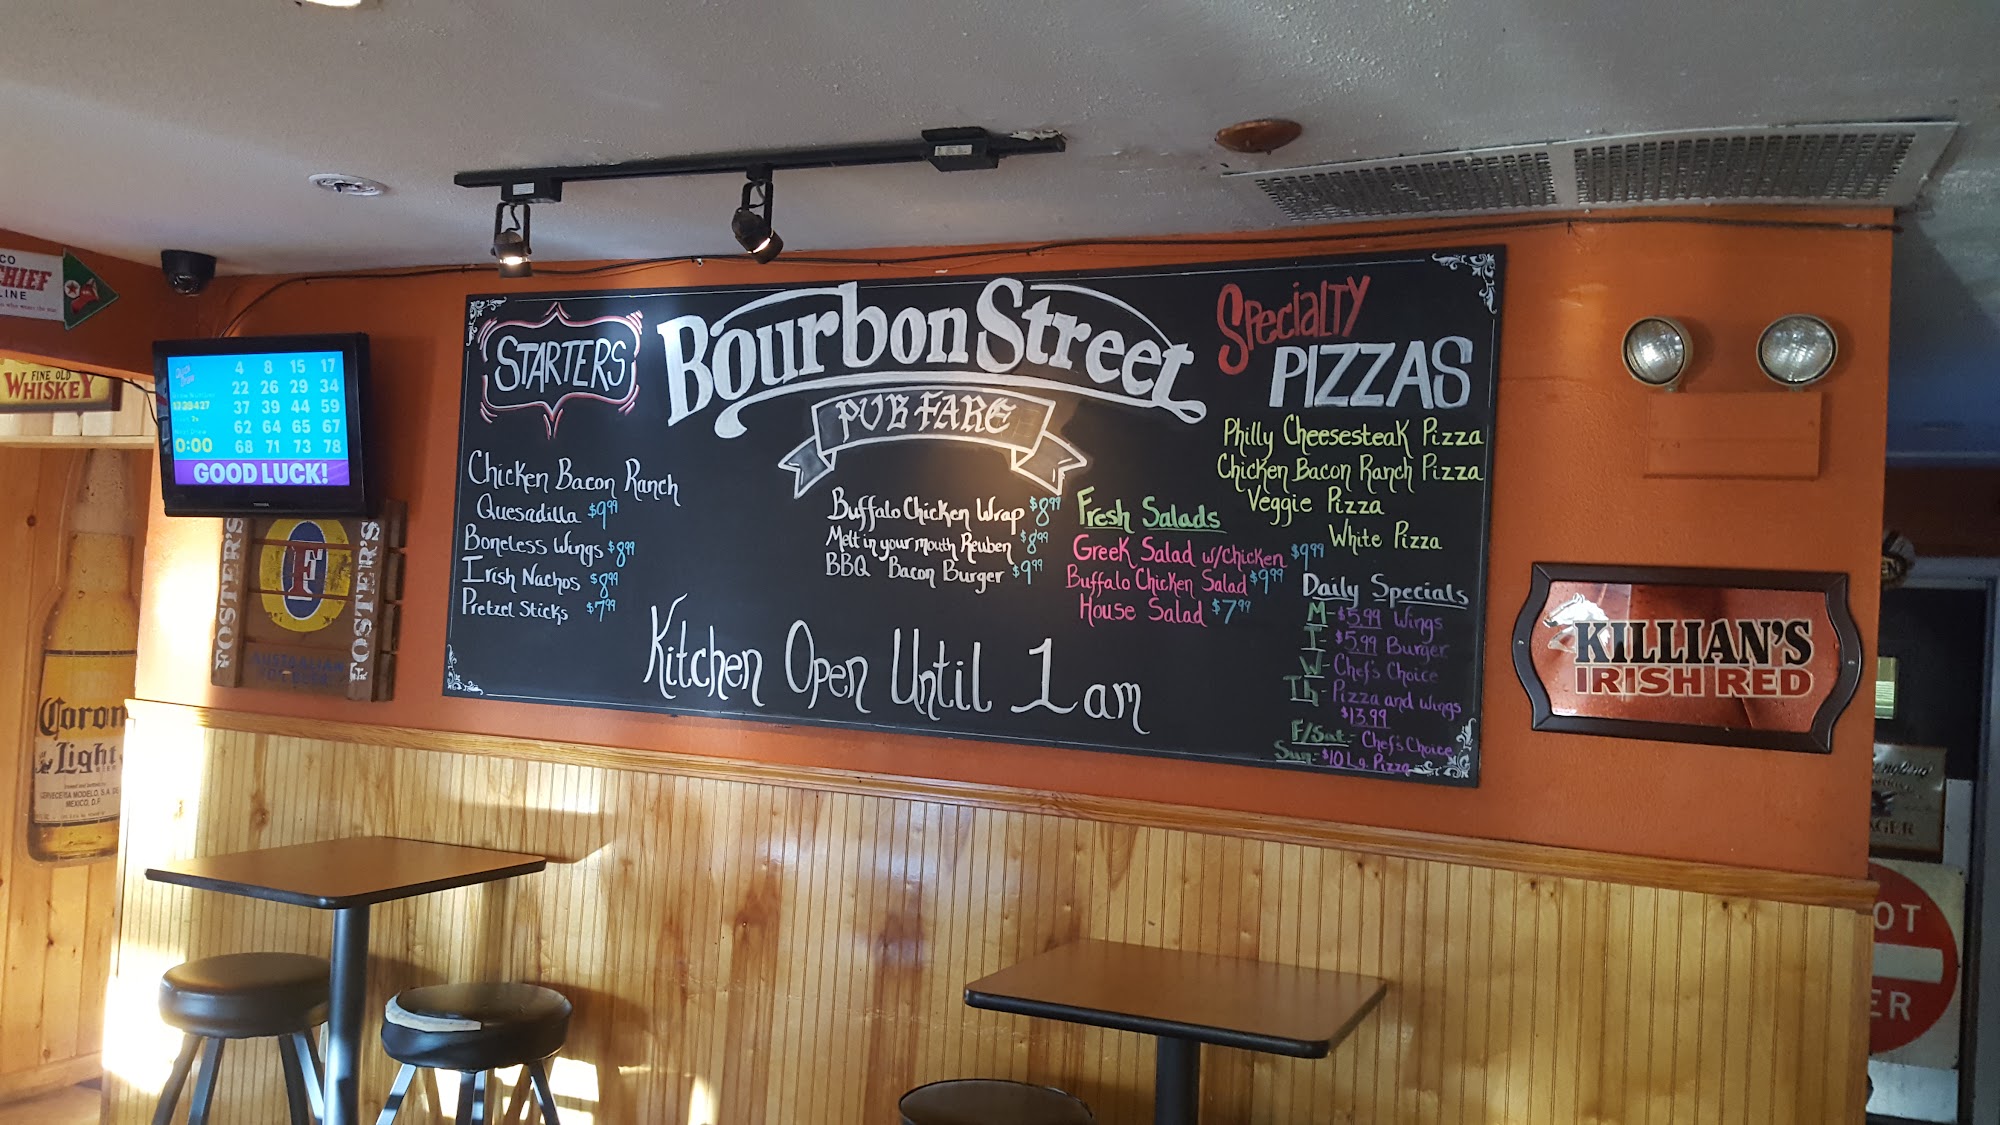 CO
CHIEF
LINE
FINE OLD
WHISKEY
4 8 15 17
22 26 29 34
37 39 44 59
62 64 65 67
0:00
68 71 73 78
GOOD LUCK!
FOSTER'S
F
FOSTER'S
AUSTRALIAN
Coron
Light
CERVECERIA MODELO, S.A. DE
MEXICO, D.F.
STARTERS
Chicken Bacon Ranch
Quesadilla $9.99
Boneless Wings $8.99
Irish Nachos $8.99
Pretzel Sticks $7.99
Bourbon Street
PUB FARE
Buffalo Chicken Wrap $8.99
Melt in your mouth Reuben $8.99
BBQ Bacon Burger $9.99
Fresh Salads
Greek Salad w/Chicken $9.99
Buffalo Chicken Salad $9.99
House Salad $7.99
Kitchen Open Until 1am
Specialty
PIZZAS
Philly Cheesesteak Pizza
Chicken Bacon Ranch Pizza
Veggie Pizza
White Pizza
Daily Specials
M- $5.99 Wings
T- $5.99 Burger
W- Chef's Choice
Th- Pizza and Wings
$13.99
F/Sat- Chef's Choice
Sun- $10 Lg. Pizza
KILLIAN'S
IRISH RED
AGER
OT
ER